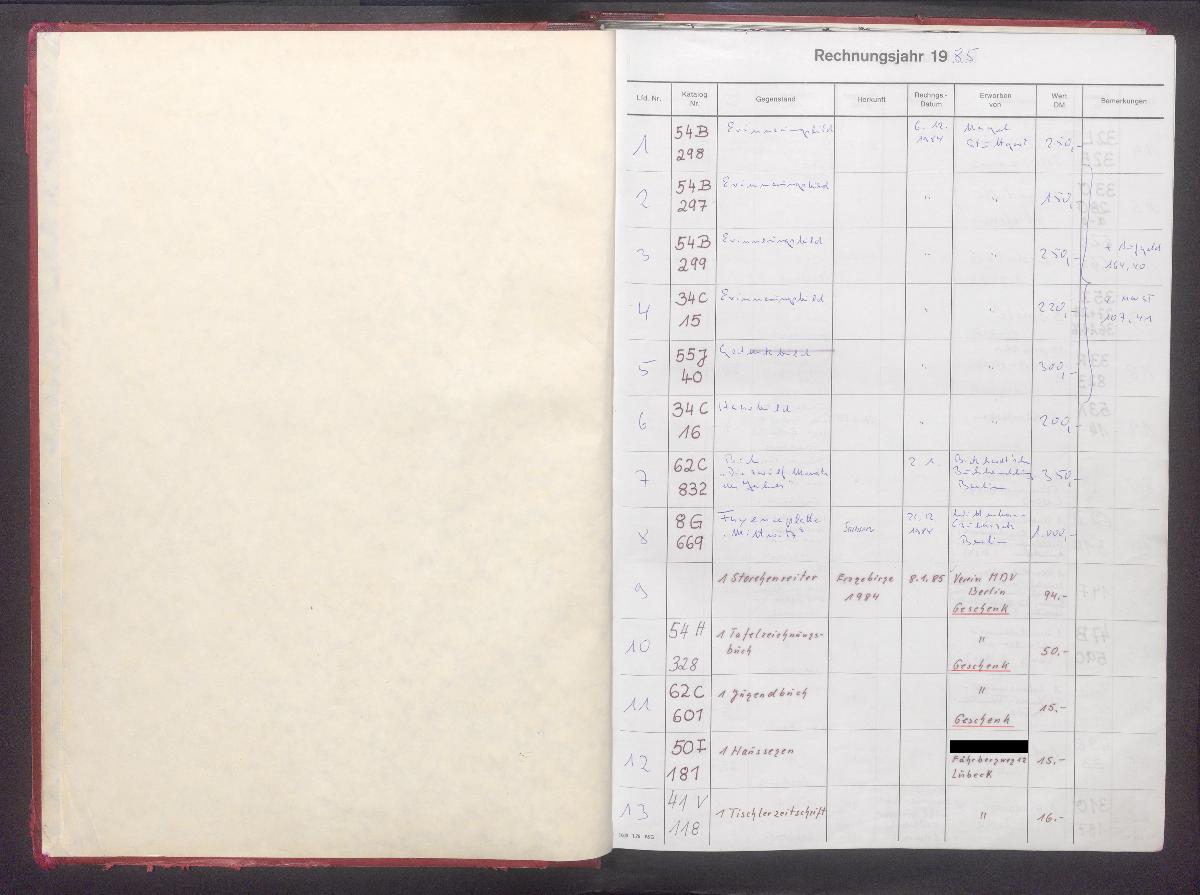 Rechnungsjahr 1985
Lfd. Nr. Katalog Nr. Gegenstand Herkunft Rechngs.-Datum Erworben von Wert DM Bemerkungen
1 54B 298 Erinnerungsbild 6. 12. 1984 Stuttgart 250,-
2 54B 297 Erinnerungsbild " " 150,-
3 54B 299 Erinnerungsbild " " 250,- + Aufgeld 164,40
4 34C 15 Erinnerungsbild " " 220,- MwSt 107,41
5 55J 40 " " 300,-
6 34C 16 Haussbild " " 200,-
7 62C 832 Buch "Die zwölf Monate des Jahres" 2. 1. Buchhandlung Berlin 350,-
8 8G 669 Sachsen 21.12. 1984 Berlin 1.000,-
9 1 Storchenreiter Erzgebirge 1984 8.1.85 Verein MDV Berlin Geschenk 94.-
10 54 H 328 1 Tafelzeichnungs-
buch " Geschenk 50.-
11 62C 601 1 Jugendbuch " Geschenk 15.-
12 50I 181 1 Haussegen Fährbergweg 12 Lübeck 15.-
13 41 V 118 1 Tischlerzeitschrift " 16.-